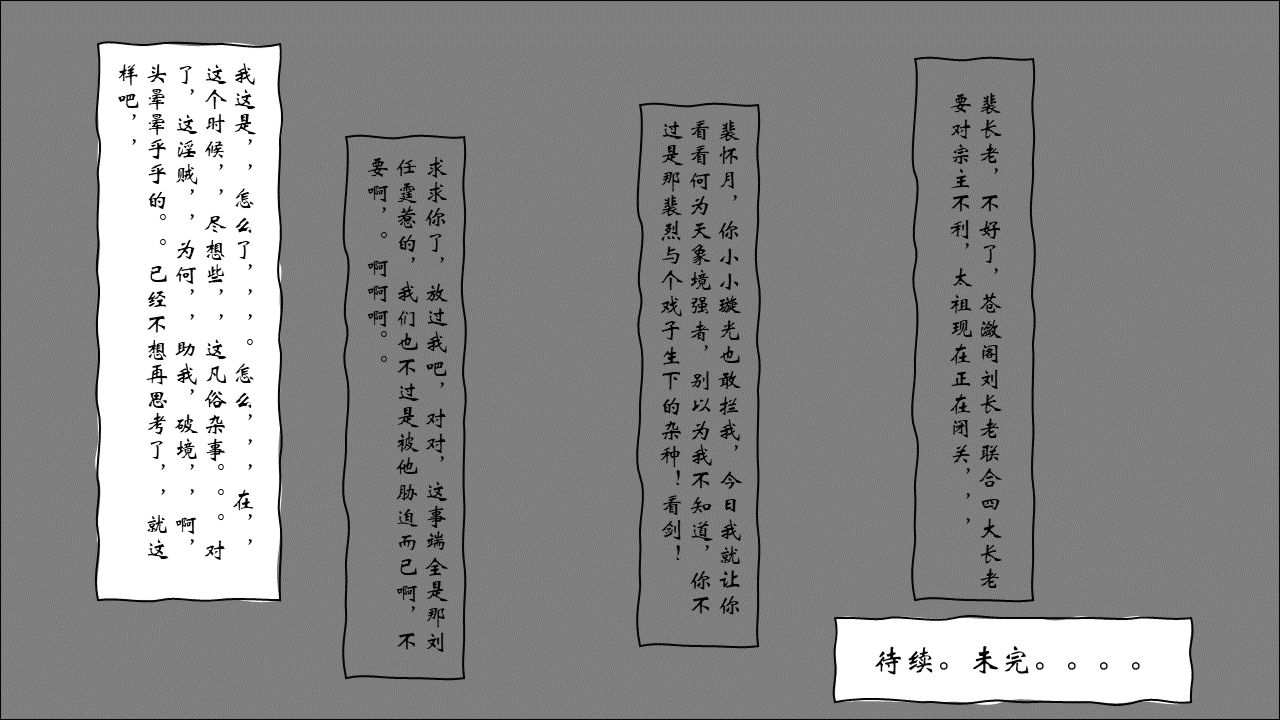 裴长老，不好了，苍澂阁刘长老联合四大长老
要对宗主不利，太祖现在正在闭关，，，
裴怀月，你小小璇光也敢拦我，今日我就让你
看看何为天象境强者，别以为我不知道，你不
过是那裴烈与个戏子生下的杂种！看剑！
求求你了，放过我吧，对对，这事端全是那刘
任霆惹的，我们也不过是被他胁迫而已啊，不
要啊，。啊啊啊。。
我这是，，怎么了，，，。怎么，，，在，，
这个时候，，尽想些，，这凡俗杂事。。。对
了，这淫贼，，为何，，助我，破境，，啊，
头晕晕乎乎的。。已经不想再思考了，，就这
样吧，，
待续。未完。。。。